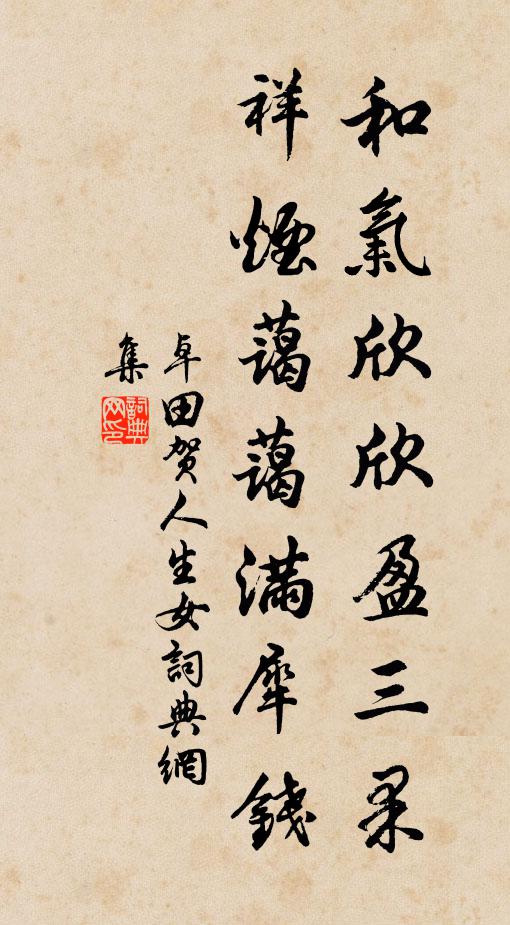 和氣欣欣盈三果
祥煙藹藹滿犀錢
卓田賀人生女詞典網
集
詞典
网印